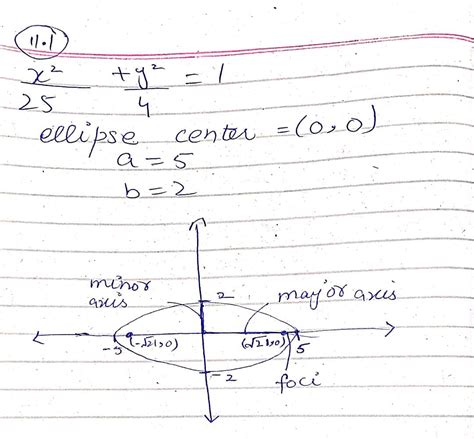 11.1
x²/25 + y²/4 = 1
ellipse center = (0,0)
a = 5
b = 2
minor axis
2
major axis
-5
(-√21,0)
(√21,0)
5
-2
foci